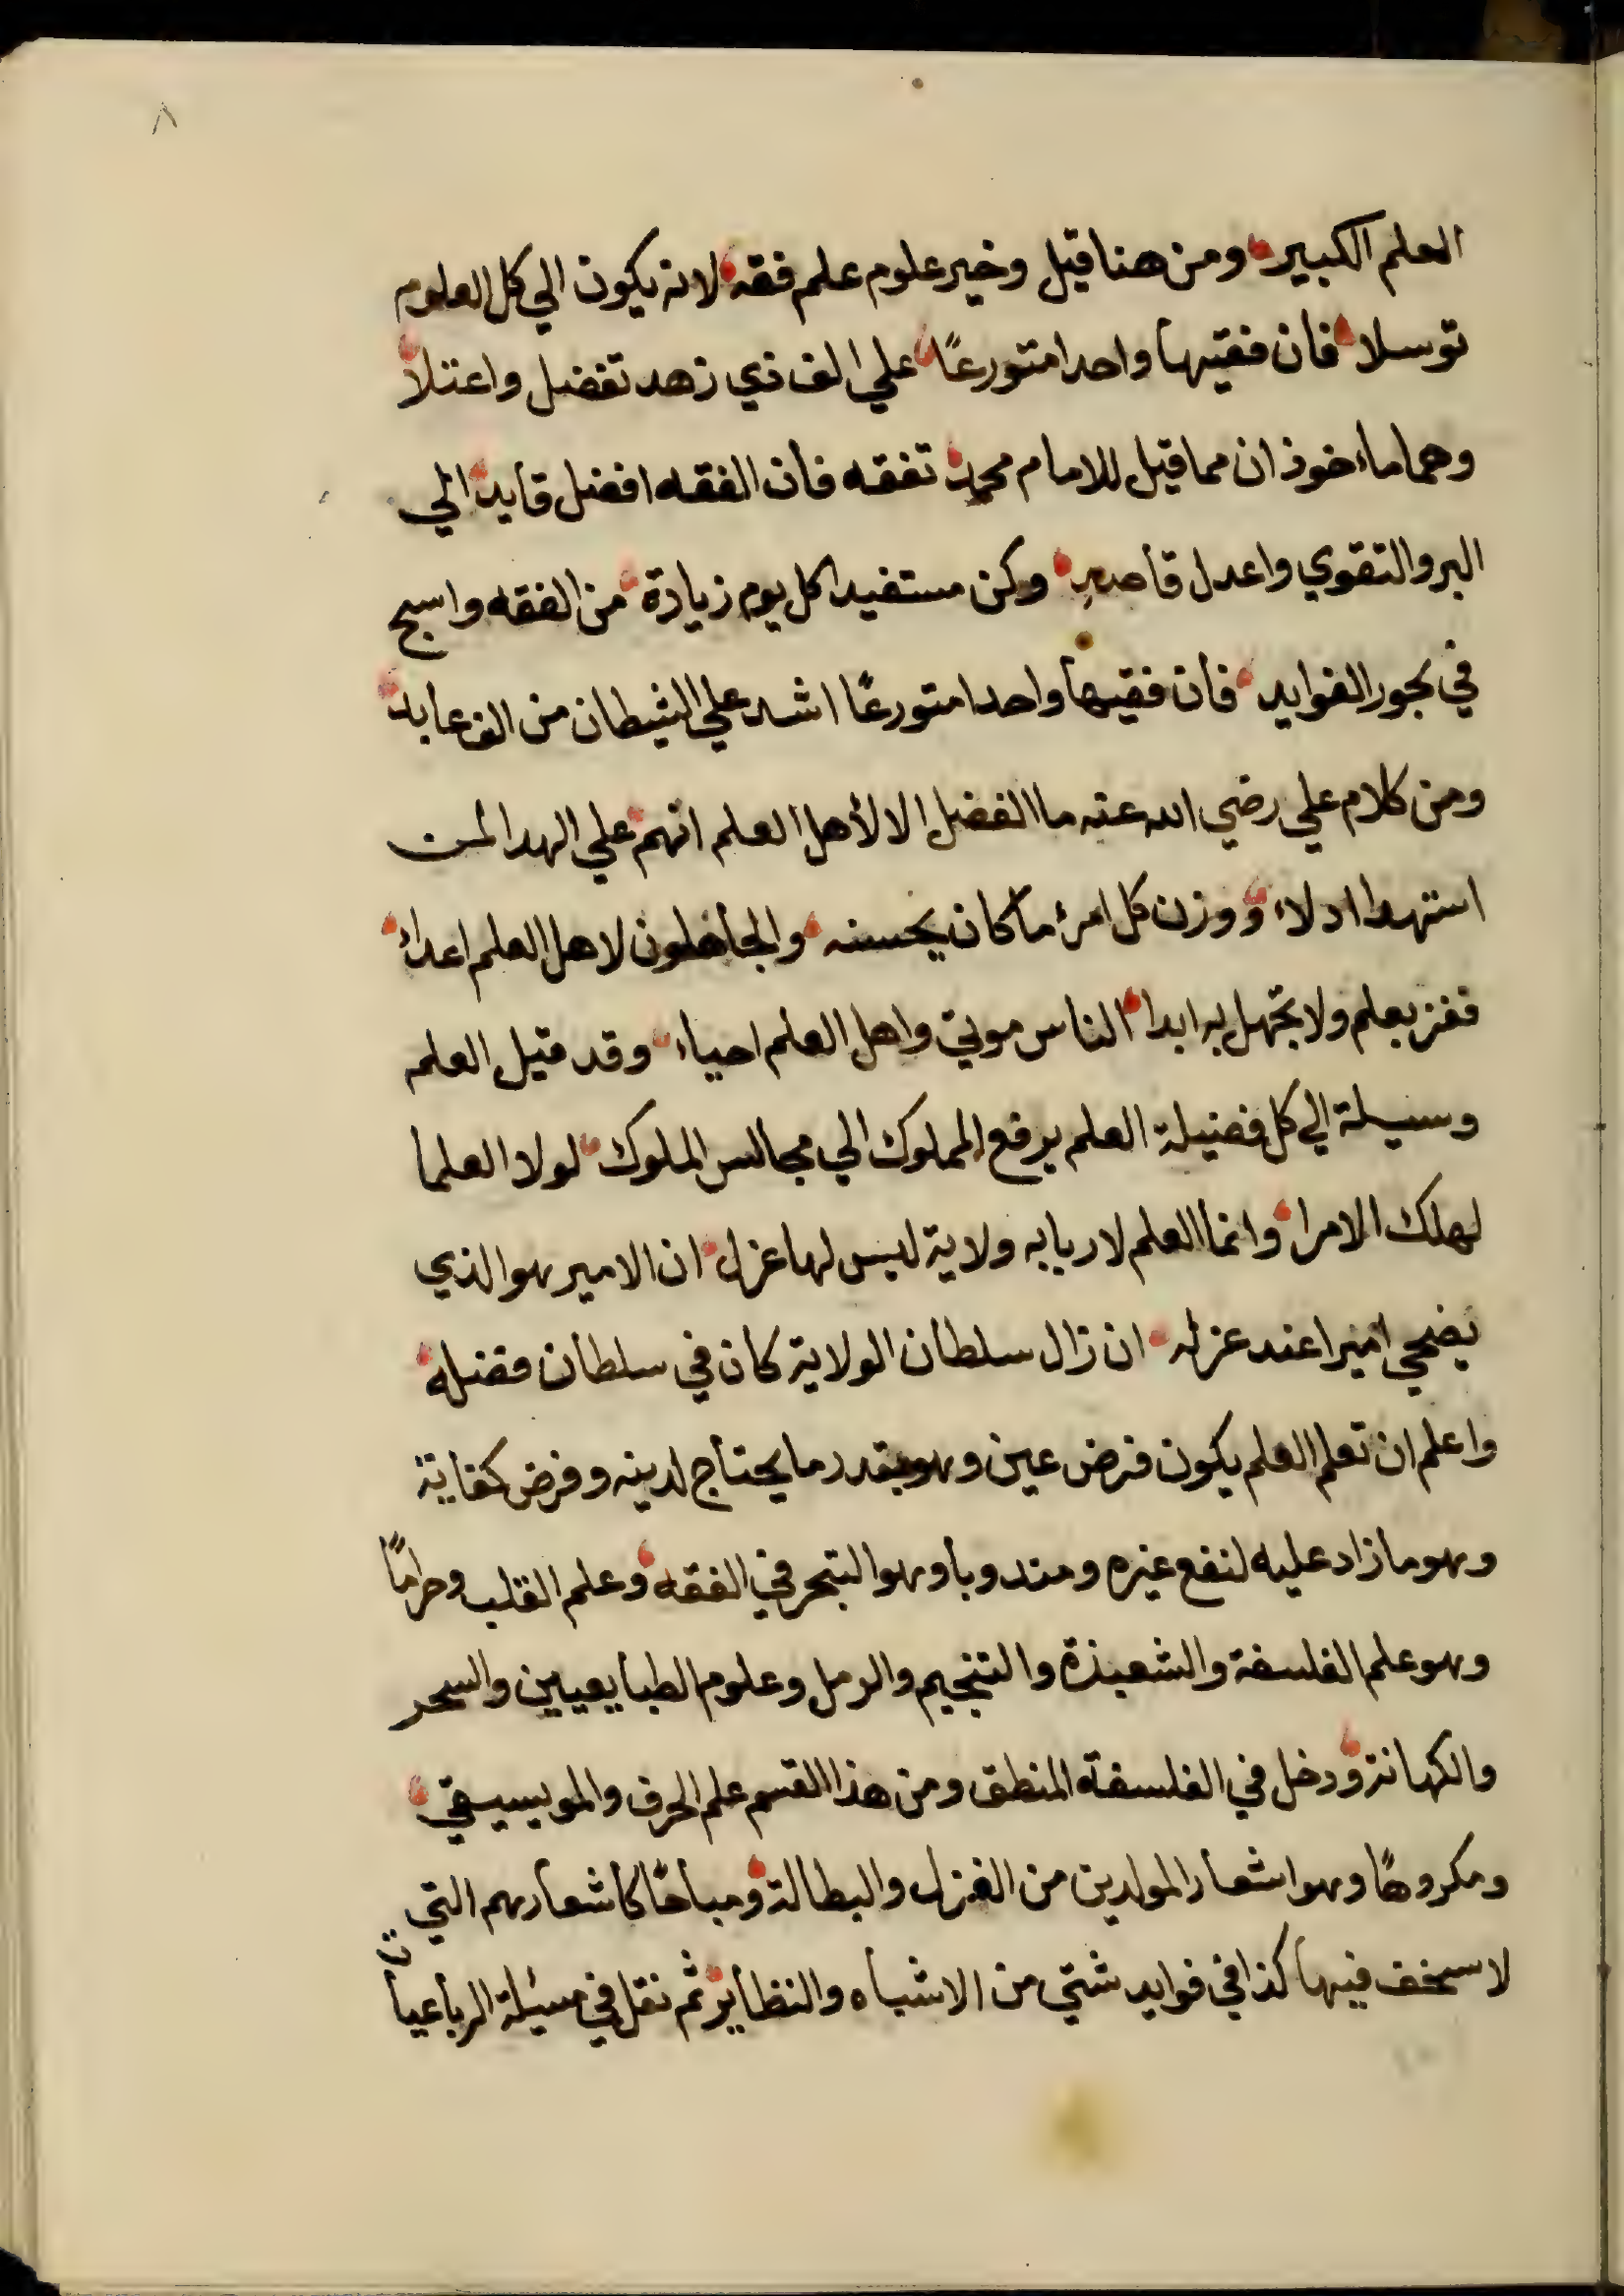 ٨
العلم الكبير ومن هنا قيل وخير علوم علم فقه لانه يكون الي كل العلوم
توسلا فان فقيها واحدا متورعًا علي الف ذي زهد تفضل واعتلا
وهما ماءخوذان مما قيل للامام محمد تفقه فان الفقه افضل قايد الي
البر والتقوي واعدل قاصدٍ وكن مستفيدا كل يوم زيادة من الفقه واسبح
في بحور الفوايد فان فقيها واحدا متورعًا اشد علي الشيطان من الف عابد
ومن كلام علي رضي الله عنه ما الفضل الا لأهل العلم انهم علي الهدا لمن
استهدا ادلاء ووزن كل امرئ ما كان يحسنه والجاهلون لاهل العلم اعداء
ففز بعلم ولا تجهل به ابدا الناس موتي واهل العلم احياء وقد قيل العلم
وسيلة الي كل فضيلة العلم يرفع المملوك الي مجالس الملوك لولا العلما
لهلك الامرا وانما العلم لاربابه ولاية ليس لها عزل ان الامير هو الذي
يضحي اميرا عند عزله ان زال سلطان الولاية كان في سلطان فضله
واعلم ان تعلم العلم يكون فرض عين وهو بقدر ما يحتاج لدينه وفرض كفاية
وهو ما زاد عليه لنفع غيره ومندوبا وهو التبحر في الفقه وعلم القلب وحرامًا
وهو علم الفلسفة والشعبذة والتنجيم والرمل وعلوم الطبايعيين والسحر
والكهانة ودخل في الفلسفة المنطق ومن هذا القسم علم الحرف والمويسيقي
ومكروهًا وهو اشعار المولدين من الغزل والبطالة ومباحًا كاشعارهم التي
لا سخف فيها كذا في فوايد شتي من الاشباه والنظاير ثم نقل في مسئلة الرباعيات